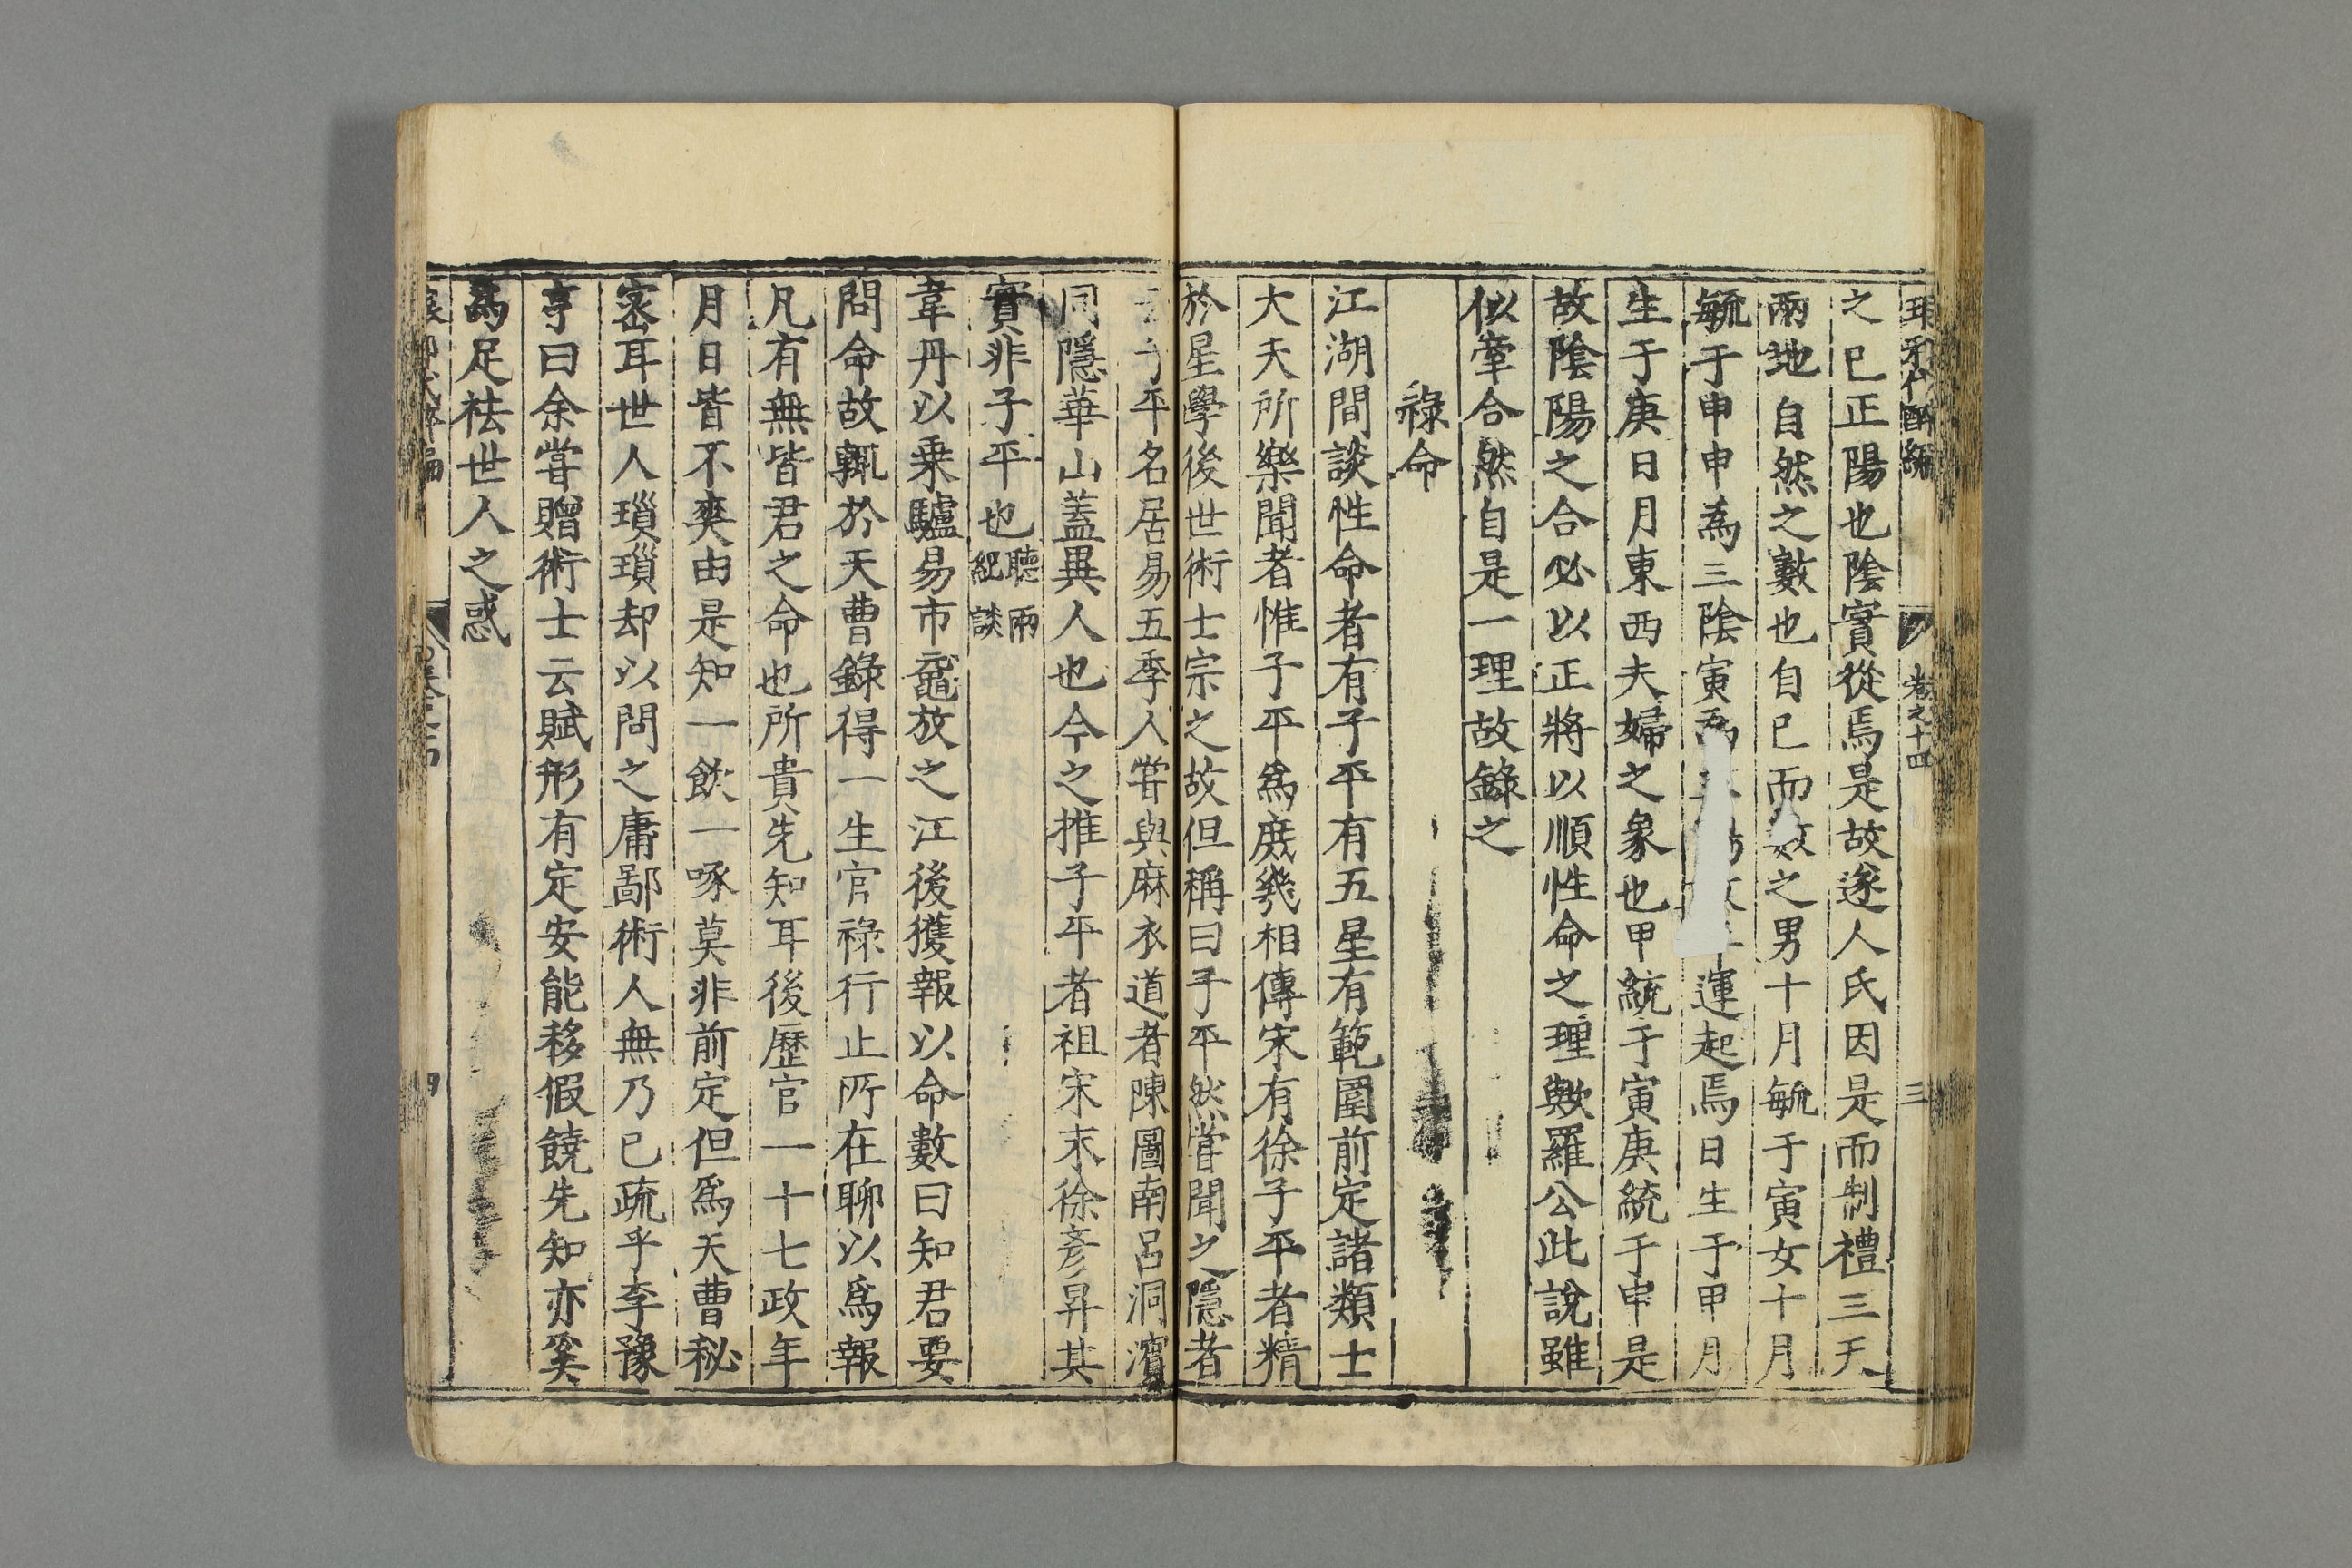 卷之十四 三
之巳正陽也陰實從焉是故遂人氏因是而制禮三天
兩地自然之數也自巳而數之男十月毓于寅女十月
毓于申申為三陰寅 運起焉日生于甲月
生于庚日月東西夫婦之象也甲統于寅庚統于申是
故陰陽之合必以正將以順性命之理歟羅公此說雖
似牽合然自是一理故錄之
祿命
江湖間談性命者有子平有五星有範圍前定諸類士
大夫所樂聞者惟子平爲庶幾相傳宋有徐子平者精
於星學後世術士宗之故但稱曰子平然嘗聞之隱者
子平名居易五季人嘗與麻衣道者陳圖南呂洞濱
同隱華山蓋異人也今之推子平者祖宋末徐彥昇其
實非子平也聽雨紀談
韋丹以乗驢易市黿放之江後獲報以命數曰知君要
問命故輒於天曹錄得一生官祿行止所在聊以爲報
凡有無皆君之命也所貴先知耳後歷官一十七政年
月日皆不爽由是知一飲一啄莫非前定但爲天曹秘
密耳世人瑣瑣却以問之庸鄙術人無乃已疏乎李豫
亨曰余嘗贈術士云賦形有定安能移假饒先知亦奚
為足祛世人之惑